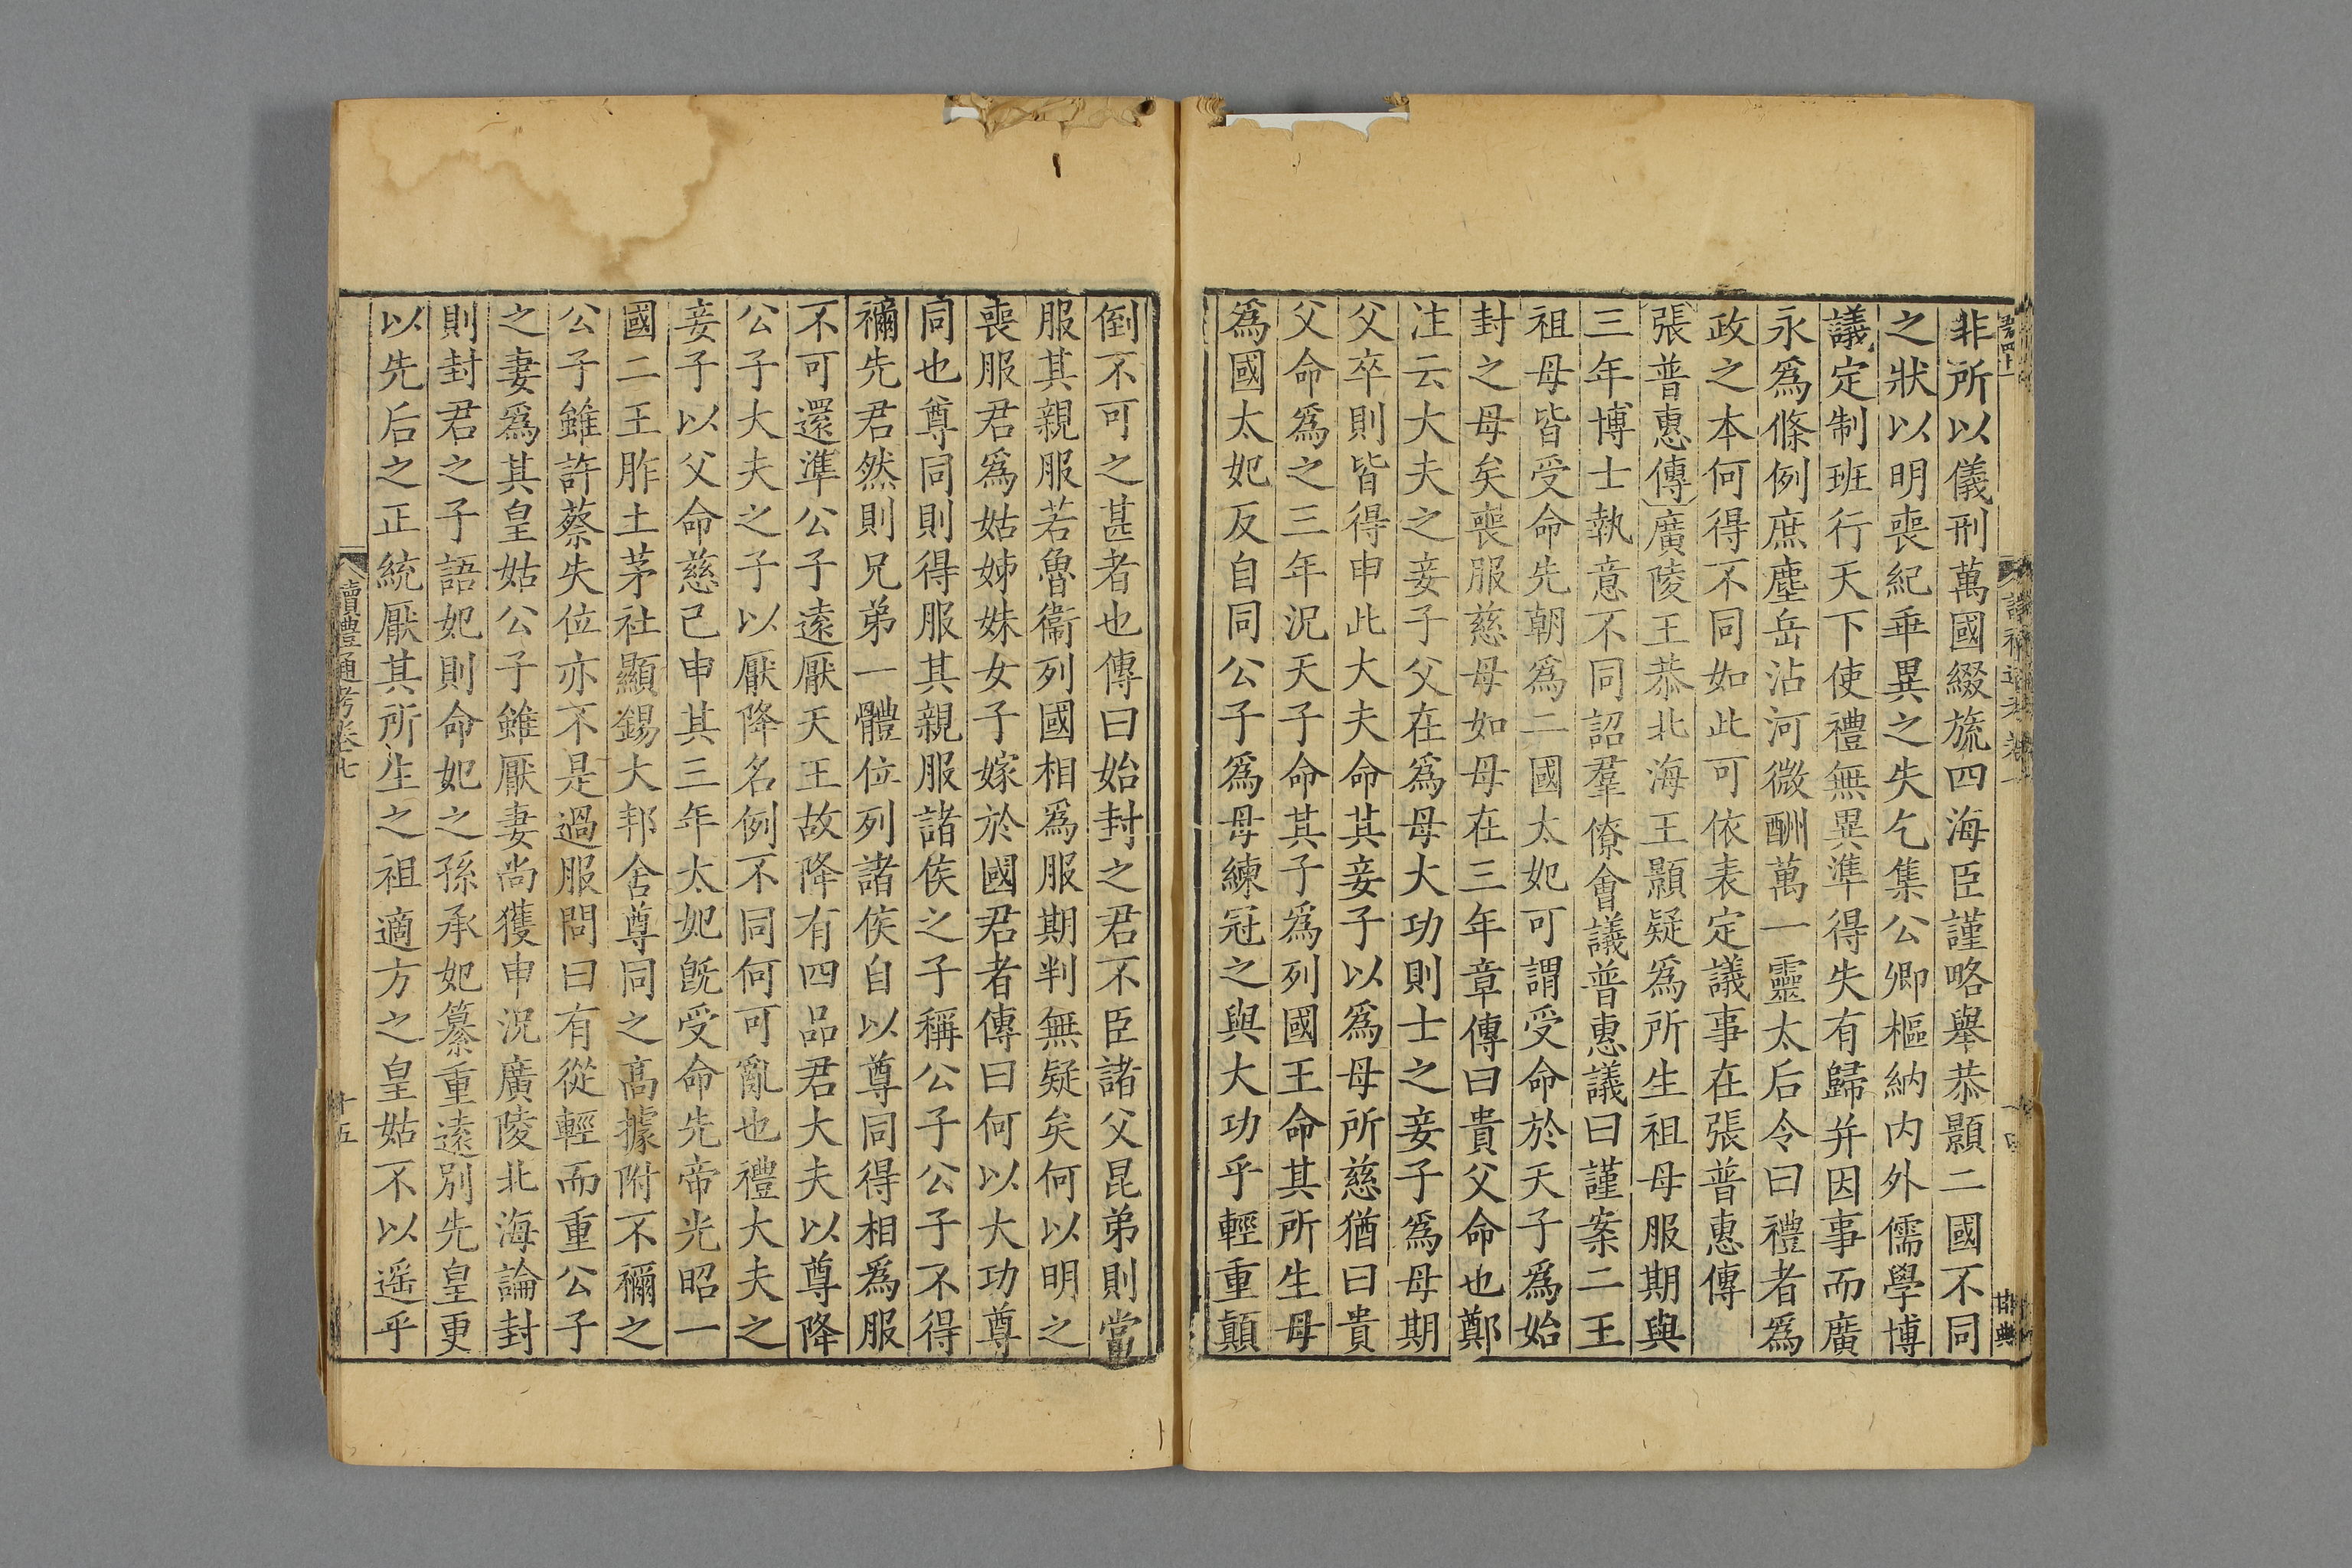 非所以儀刑萬國綴旒四海臣謹略舉恭顥二國不同
之狀以明喪紀乖異之失乞集公卿樞納内外儒學博
議定制班行天下使禮無異準得失有歸并因事而廣
永爲條例庶塵岳沾河微酬萬一靈太后令曰禮者爲
政之本何得不同如此可依表定議事在張普惠傳
張普惠傳廣陵王恭北海王顥疑爲所生祖母服期與
三年博士執意不同詔羣僚會議普惠議曰謹案二王
祖母皆受命先朝爲二國太妃可謂受命於天子爲始
封之母矣喪服慈母如母在三年章傳曰貴父命也鄭
注云大夫之妾子父在爲母大功則士之妾子爲母期
父卒則皆得申此大夫命其妾子以爲母所慈猶曰貴
父命爲之三年況天子命其子爲列國王命其所生母
爲國太妃反自同公子爲母練冠之與大功乎輕重顛
倒不可之甚者也傳曰始封之君不臣諸父昆弟則當
服其親服若魯衞列國相爲服期判無疑矣何以明之
喪服君爲姑姊妹女子嫁於國君者傳曰何以大功尊
同也尊同則得服其親服諸侯之子稱公子公子不得
禰先君然則兄弟一體位列諸侯自以尊同得相爲服
不可還準公子遠厭天王故降有四品君大夫以尊降
公子大夫之子以厭降名例不同何可亂也禮大夫之
妾子以父命慈己申其三年太妃旣受命先帝光昭一
國二王胙土茅社顯錫大邦舍尊同之高據附不禰之
公子雖許蔡失位亦不是過服問曰有從輕而重公子
之妻爲其皇姑公子雖厭妻尚獲申況廣陵北海論封
則封君之子語妃則命妃之孫承妃纂重遠別先皇更
以先后之正統厭其所生之祖適方之皇姑不以遥乎
讀禮通考卷七
十五